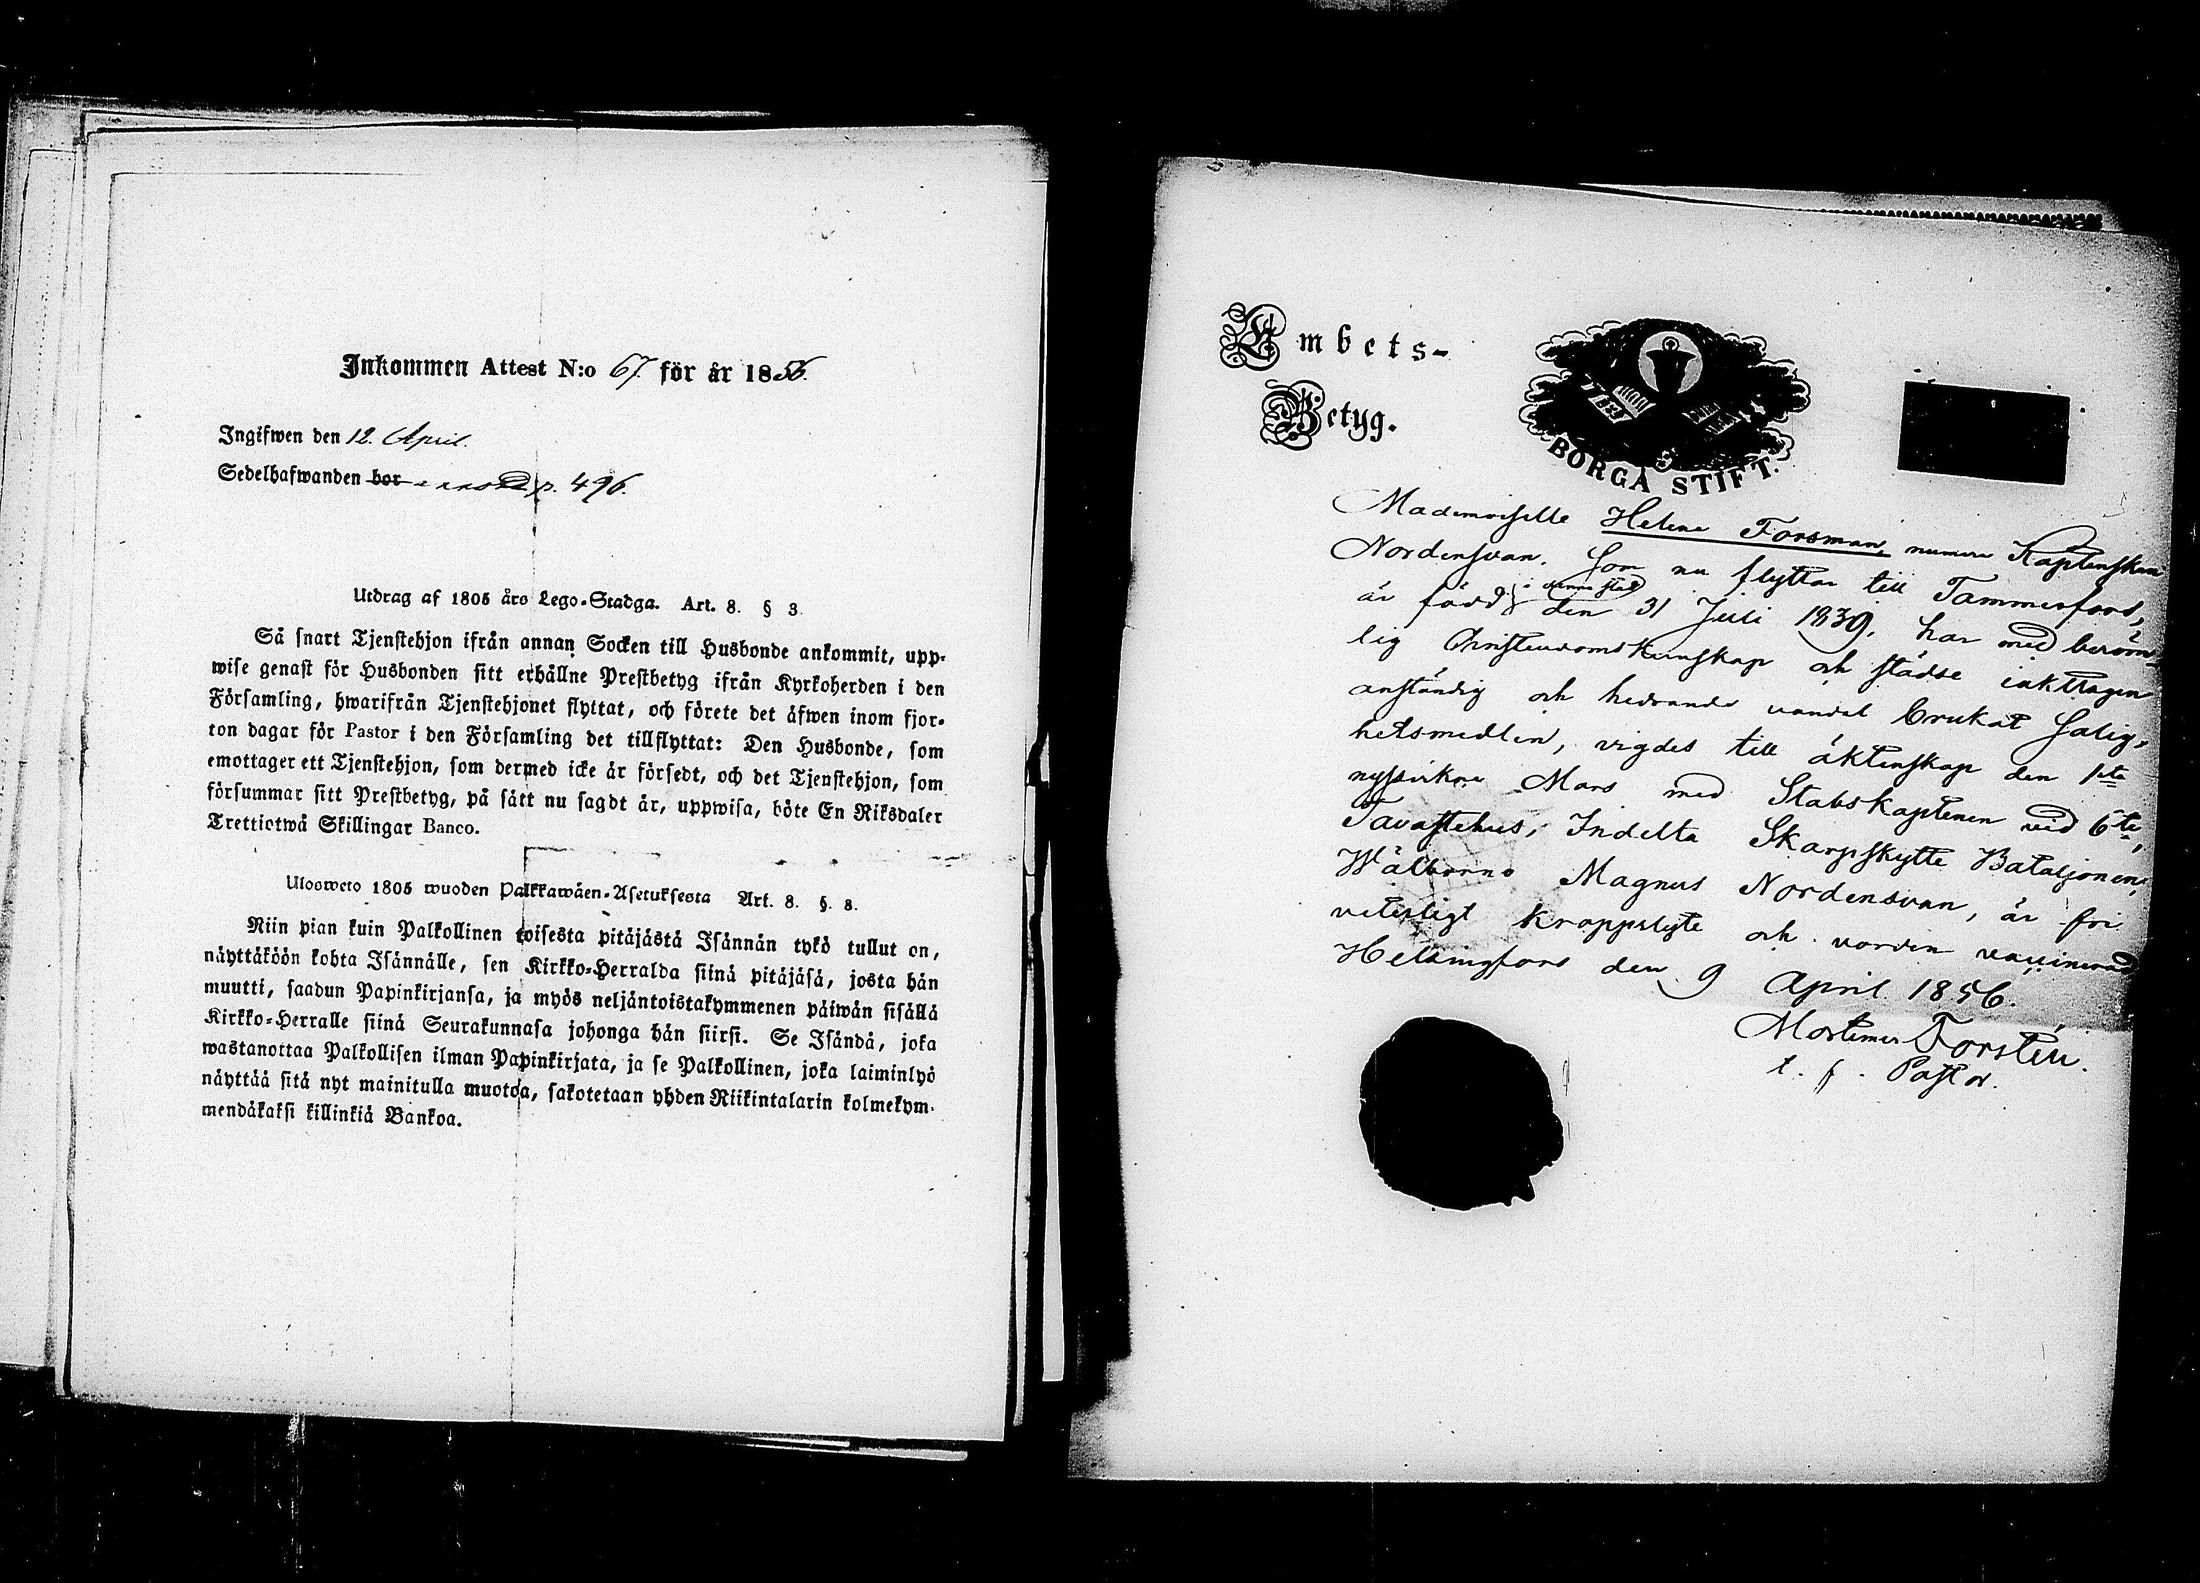 Inkommen Attest N:o 67. för år 1856.
Ingifwen den 12. April.
Sedelhafwanden bor p. 496.
Utdrag af 1805 års Lego-Stadga. Art. 8. § 3.
Så snart Tjenstehjon ifrån annan Socken till Husbonde ankommit, upp-
wise genast för Husbonden sitt erhållne Prestbetyg ifrån Kyrkoherden i den
Församling, hwarifrån Tjenstehjonet flyttat, och förete det äfwen inom fjor-
ton dagar för Pastor i den Församling det tillflyttat: Den Husbonde, som
emottager ett Tjenstehjon, som dermed icke är försedt, och det Tjenstehjon, som
försummar sitt Prestbetyg, på sätt nu sagdt är, uppwisa, böte En Riksdaler
Trettiotwå Skillingar Banco.
Ulosweto 1805 wuoden Palkkawäen-Asetuksesta Art. 8. §. 8.
Niin pian kuin Palkollinen toisesta pitäjästä Isännän tykö tullut on,
näyttäköön kohta Isännälle, sen Kirkko-Herralda siinä pitäjäsä, josta hän
muutti, saadun Papinkirjansa, ja myös neljäntoistakymmenen päiwän sisällä
Kirkko-Herralle siinä Seurakunnasa johonga hän siirsi. Se Isändä, joka
wastanottaa Palkollisen ilman Papinkirjata, ja se Palkollinen, joka laiminlyö
näyttää sitä nyt mainitulla muotoa, sakotetaan yhden Riikintalarin kolmekym-
mendäkaksi killinkiä Bankoa.
Embets-
Betyg.
BORGÅ STIFT.
Mademoiselle Helene Forsman, numera Kaptenskan
Nordensvan. Som nu flyttar till Tammerfors,
är född i denna stad den 31 Juli 1839, har med beröm-
lig Christendomskunskap och städse iakttagen
anständig och hedrande vandel brukat Salig-
hetsmedlen, vigdes till äktenskap den 1sta
nyssvikne Mars med Stabskaptenen vid 6te
Tavastehus, Indelta Skarpskytte Bataljonen,
Wälborne Magnus Nordensvan, är fri
veterligt kroppslyte och vorden vaccinerad
Helsingfors den 9 April 1856.
Mortimer Forstén.
t. f. Pastor.